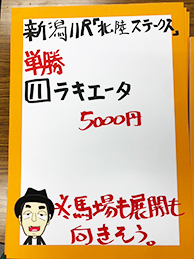 新潟11R『北陸ステークス』
単勝
11 ラキエータ
5000円
※馬場も展開も
向きそう。